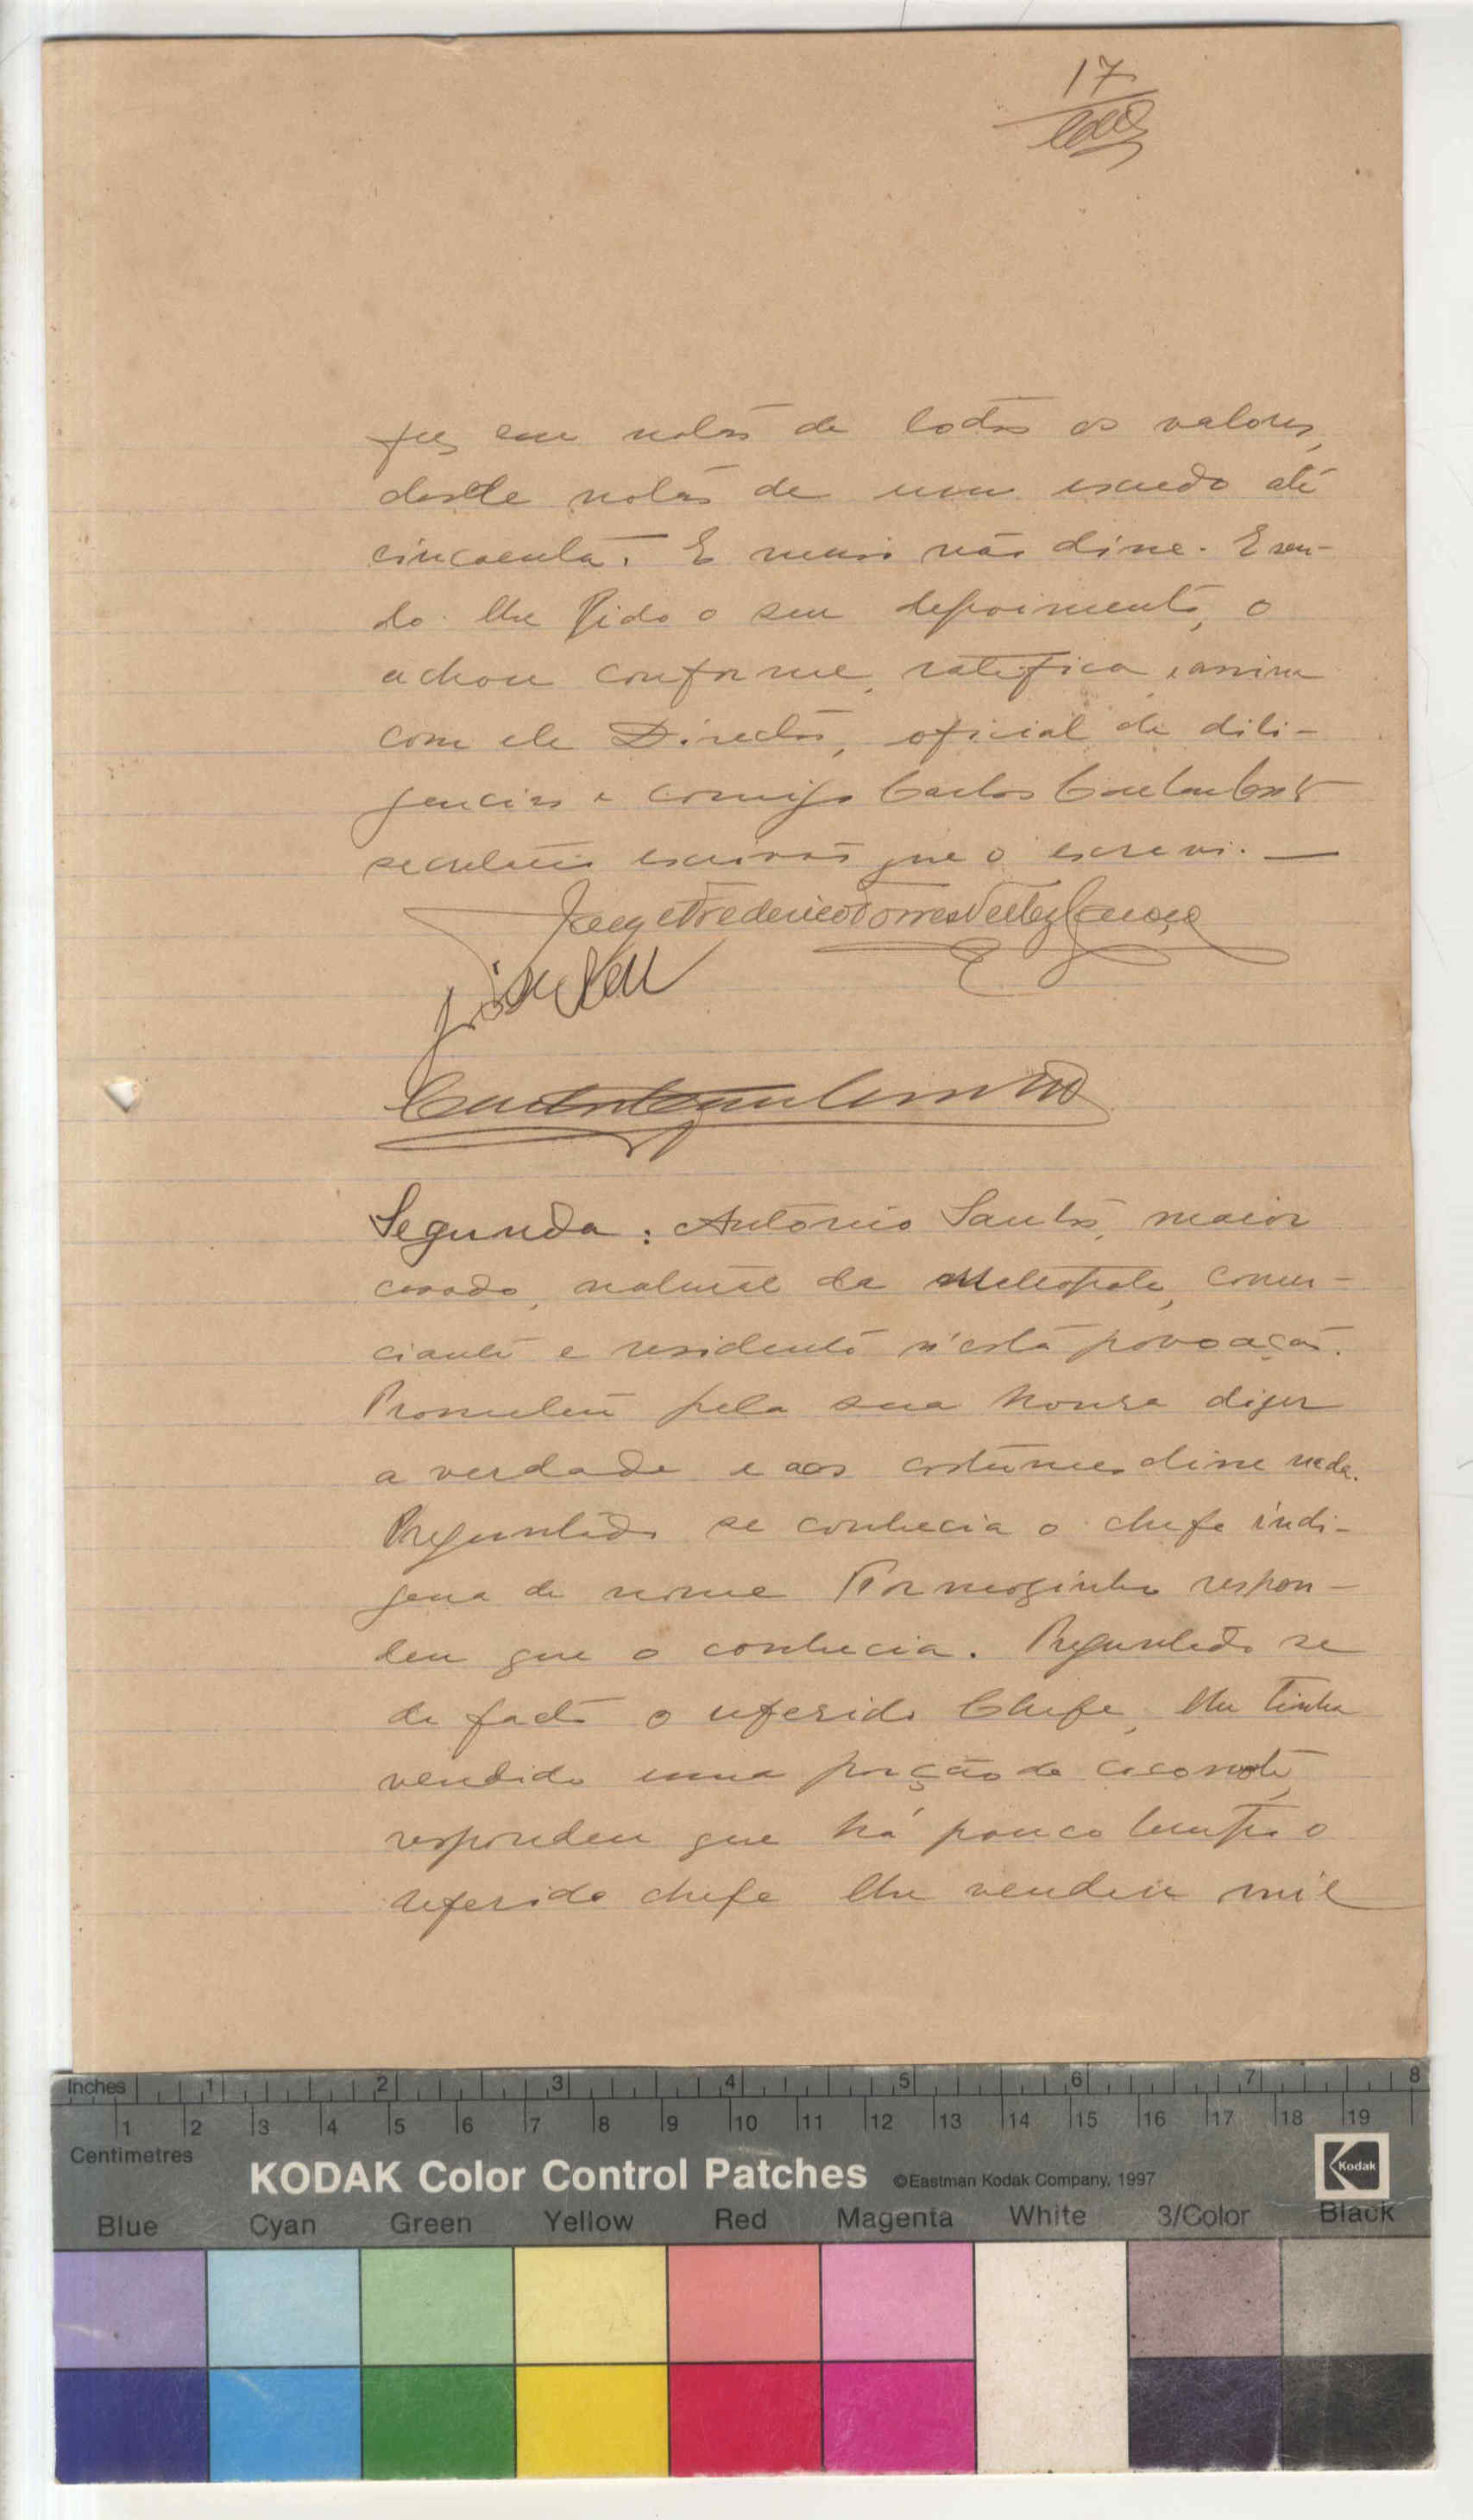 17
fez em notas de todos os valores,
desde notas de um escudo até
cincoenta. E mais não disse. E sen-
do lhe lido o seu depoimento, o
achou conforme, ratifica e assina
com ele Director, oficial de dili-
gencias e comigo Carlos
secretario escrivão que o escrevi. —
Frederico Torres
Segunda: António Santos, maior
casado, natural da Metropole, comer-
ciante e residente n'esta povoação.
Prometeu pela sua honra dizer
a verdade e aos costumes disse nada.
Preguntado se conhecia o chefe indi-
gena de nome Formosinho respon-
deu que o conhecia. Preguntado se
de facto o referido Chefe, lhe tinha
vendido uma porção de coconote,
respondeu que há pouco tempo o
referido chefe lhe vendeu mil
Inches 1 2 3 4 5 6 7 8
1 2 3 4 5 6 7 8 9 10 11 12 13 14 15 16 17 18 19
Centimetres
KODAK Color Control Patches ©Eastman Kodak Company, 1997 Kodak
Blue Cyan Green Yellow Red Magenta White 3/Color Black